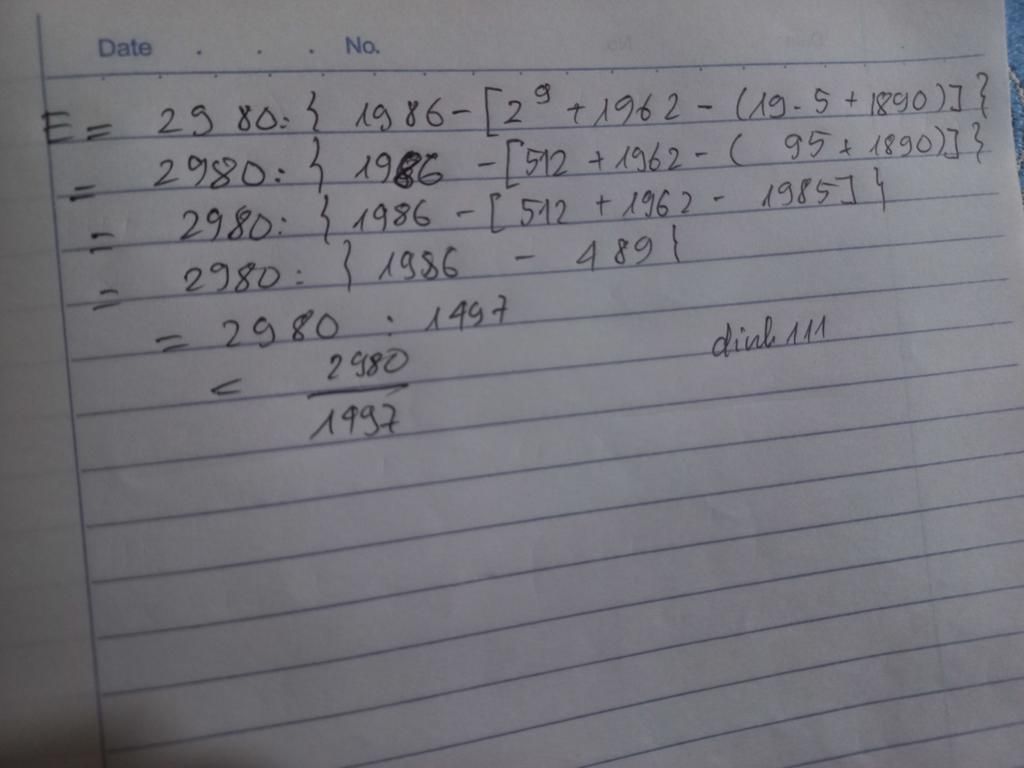 Date . . . No.
E = 2980 : } 1986 - [2⁹ + 1962 - (19 . 5 + 1890)] }
= 2980 : } 1986 - [512 + 1962 - ( 95 + 1890)] }
= 2980 : } 1986 - [512 + 1962 - 1985] }
= 2980 : } 1986 - 489 }
= 2980 : 1497
= 2980
1497
dinh 111